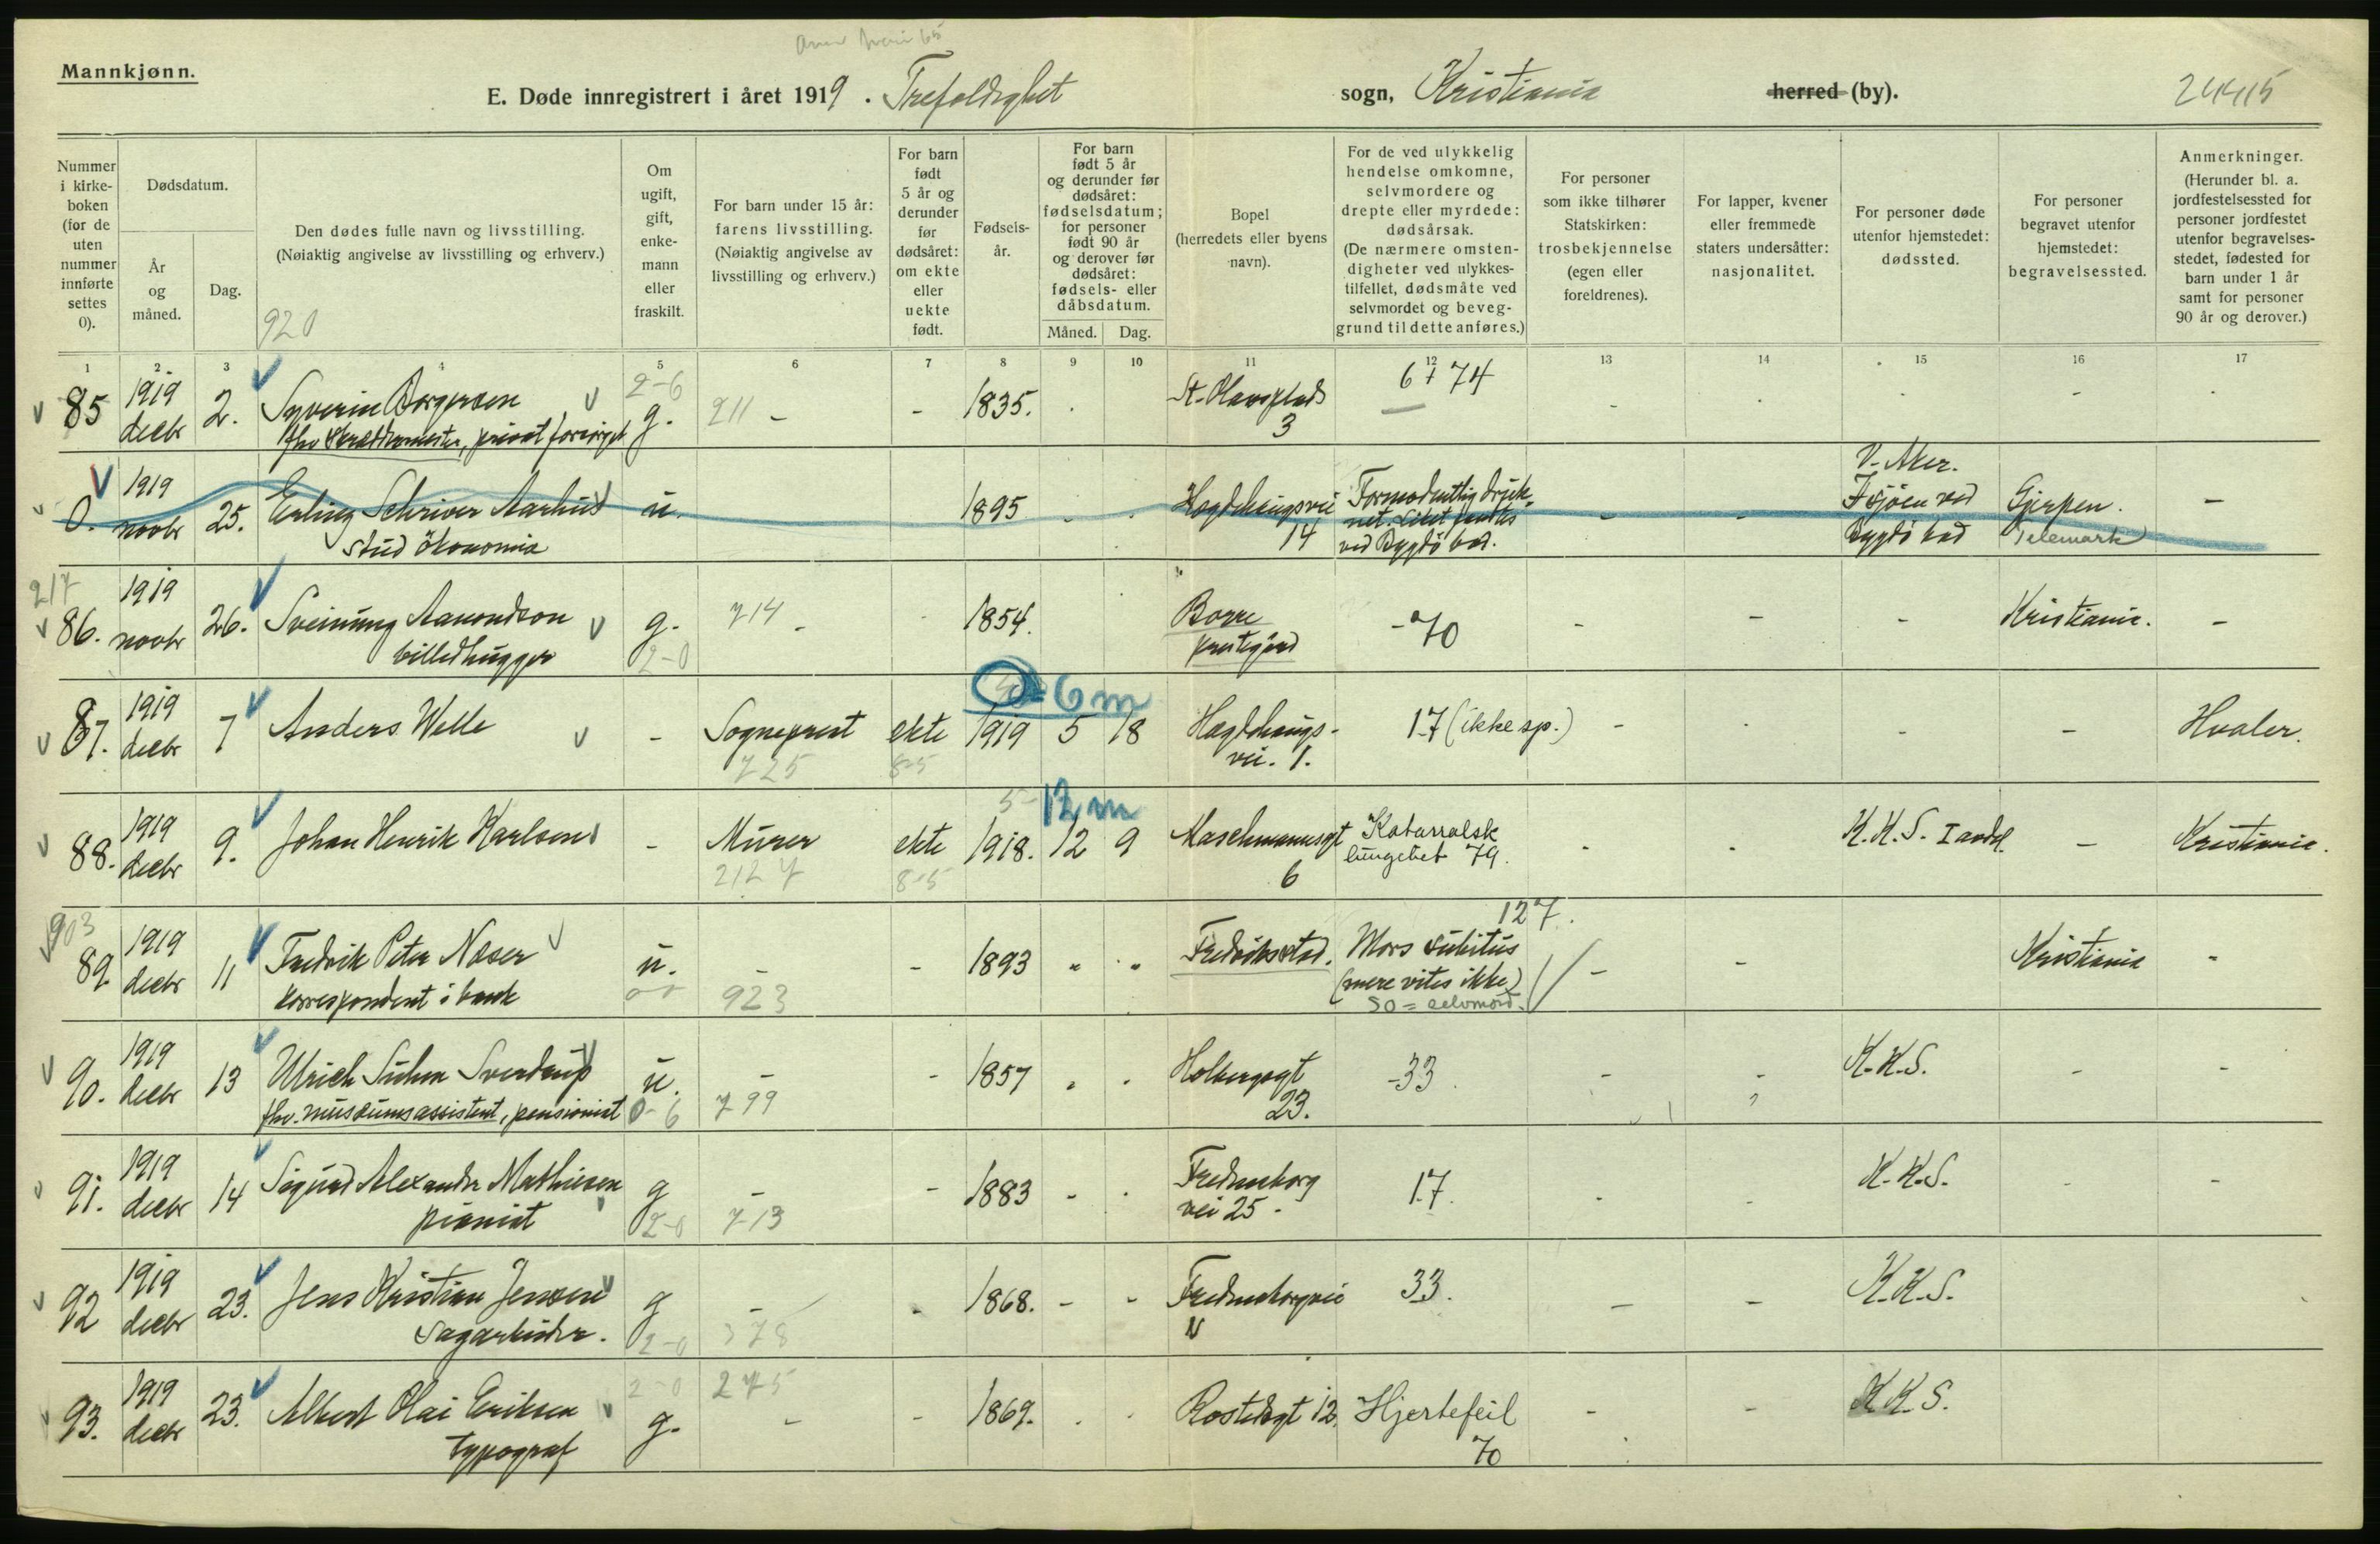 Mannkjønn.
E. Døde innregistrert i året 1919. Trefoldighet sogn, Kristiania herred (by). 24415
Nummer i kirkeboken (for de uten nummer innførte settes 0).
Dødsdatum.
År og måned.
Dag.
Den dødes fulle navn og livsstilling.
(Nøiaktig angivelse av livsstilling og erhverv.)
920
Om ugift, gift, enkemann eller fraskilt.
For barn under 15 år: farens livsstilling. (Nøiaktig angivelse av livsstilling og erhverv.)
For barn født 5 år og derunder før dødsåret: om ekte eller uekte født.
Fødselsår.
For barn født 5 år og derunder før dødsåret: fødselsdatum; for personer født 90 år og derover før dødsåret: fødsels- eller dåbsdatum.
Måned. Dag.
Bopel (herredets eller byens navn).
For de ved ulykkelig hendelse omkomne, selvmordere og drepte eller myrdede: dødsårsak. (De nærmere omstendigheter ved ulykkestilfellet, dødsmåte ved selvmordet og beveggrund til dette anføres.)
For personer som ikke tilhører Statskirken: trosbekjennelse (egen eller foreldrenes).
For lapper, kvener eller fremmede staters undersåtter: nasjonalitet.
For personer døde utenfor hjemstedet: dødssted.
For personer begravet utenfor hjemstedet: begravelsessted.
Anmerkninger. (Herunder bl. a. jordfestelsessted for personer jordfestet utenfor begravelsesstedet, fødested for barn under 1 år samt for personer 90 år og derover.)
1 2 3 4 5 6 7 8 9 10 11 12 13 14 15 16 17
85 1919 decbr 2. Syverin Borgersen 2-6 g. 211 - - 1835. St. Olavsplads 3 6+74
fhv skræddermester, privat forsørget
0. 1919 novbr 25. Erling Schriver Aarhus u. 1895 Hægdehaugsvei 14 Formodentlig druknet. Liket fandtes ved Bygdö bad. - - V. Aker. I sjöen ved Bygdö bad Gjerpen. Telemark -
stud ökonomia
217
86. 1919 novbr 26. Sveinung Aamondson g. 2-0 714 - 1854. Borre prestegård -70 - - - Kristiania. -
billedhugger
87. 1919 decbr 7 Anders Welle - Sogneprest 725 ekte 8-5 6 m 1919 5 18 Hægdehaugsvei. 1. 17 (ikke sp.) - - - Hvaler.
88. 1919 decbr 9. Johan Henrik Karlsen - Murer 212 7 ekte 8-5 5- 12 m 1918. 12 9 Maschmannsgt 6 Katarralsk lungebet 79. K.K.S. I avdel. - Kristiania.
903
89. 1919 decbr 11 Fredrik Peter Næser u. - 923 - 1893 " " Fredrikstad. 127. Mors subitus (mere vites ikke) SO = selvmord. - - Kristiania "
korrespondent i bank
90. 1919 decbr 13 Ulrich Suhm Sverdrup u. 0-6 - 799 - 1857 Holbergsgt 23. -33. - - K.K.S. - -
fhv. museumsassistent, pensionist
91. 1919 decbr 14 Sigurd Alexander Mathiesen g 2-0 - 713 - 1883 - Fredensborg vei 25. 17. K.K.S. - -
pianist
92 1919 decbr 23. Jens Kristian Jensen g 2-0 - 378 - 1868. - - Fredensborgvei 33. - - K.K.S.
Sagarbeider.
93. 1919 decbr 23. Albert Olai Eriksen 2-0 g. 275 - - 1869. Rostedsgt 12. Hjertefeil 70 - - K.K.S.
typograf